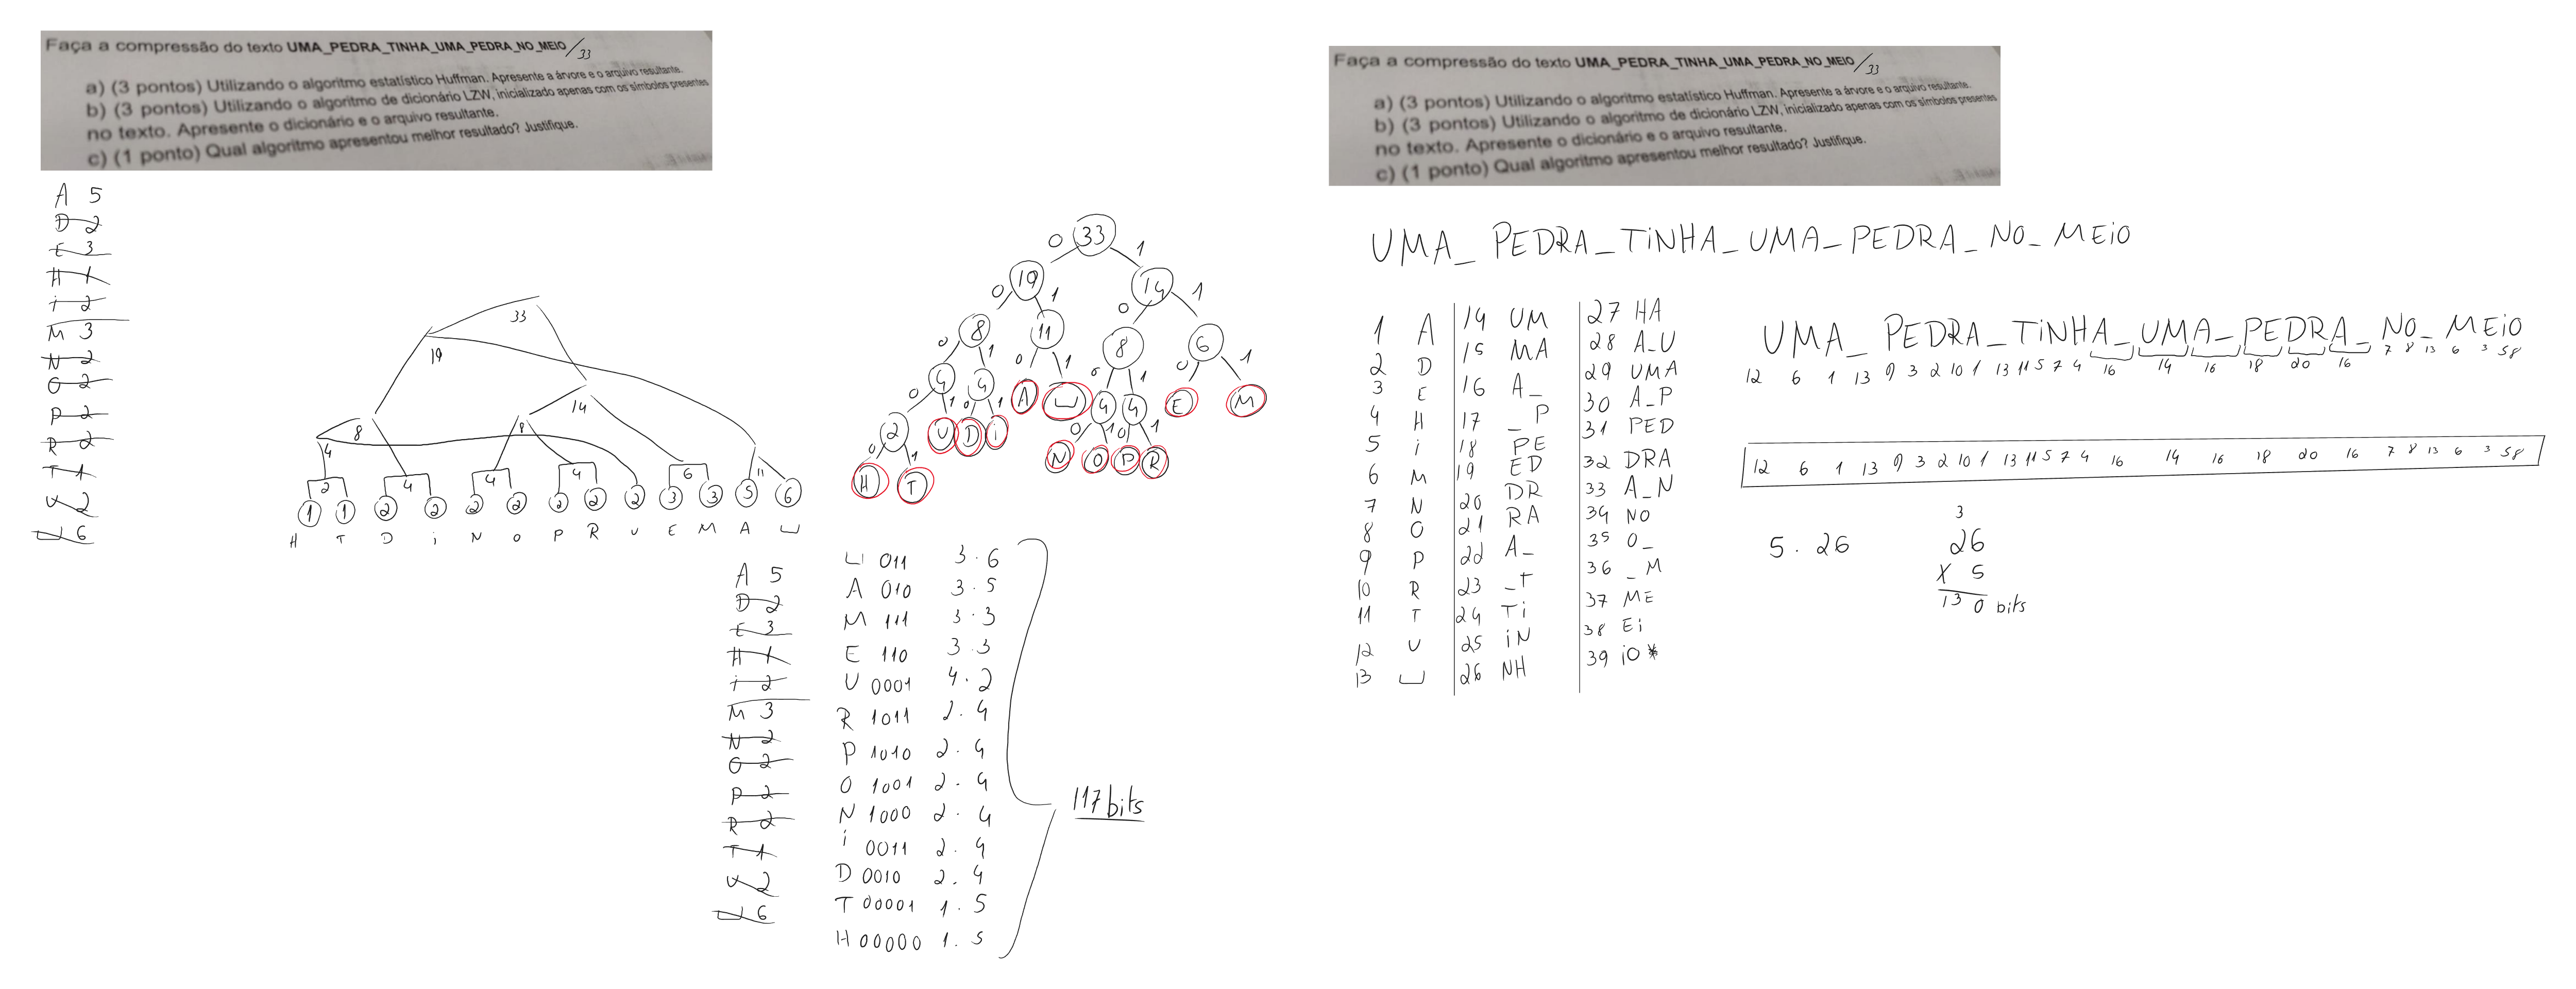 Faça a compressão do texto UMA_PEDRA_TINHA_UMA_PEDRA_NO_MEIO /33
a) (3 pontos) Utilizando o algoritmo estatístico Huffman. Apresente a árvore e o arquivo resultante.
b) (3 pontos) Utilizando o algoritmo de dicionário LZW, inicializado apenas com os símbolos presentes
no texto. Apresente o dicionário e o arquivo resultante.
c) (1 ponto) Qual algoritmo apresentou melhor resultado? Justifique.
A 5
D 2
E 3
H 1
i 2
M 3
N 2
O 2
P 2
R 2
T 1
U 2
␣ 6
33
19
14
8
8
4
2 4 4 4 6 11
1 1 2 2 2 2 2 2 2 3 3 5 6
H T D i N O P R U E M A ␣
0 33 1
0 19 1 0 14 1
0 8 1 0 11 1 0 8 1 0 6 1
0 4 1 0 4 1 A ␣ 0 4 1 0 4 1 E M
0 2 1 U D i N O P R
H T
A 5
D 2
E 3
H 1
i 2
M 3
N 2
O 2
P 2
R 2
T 1
U 2
␣ 6
␣ 011 3.6
A 010 3.5
M 111 3.3
E 110 3.3
U 0001 4.2
R 1011 2.4
P 1010 2.4
O 1001 2.4
N 1000 2.4
i 0011 2.4
D 0010 2.4
T 00001 1.5
H 00000 1.5
117 bits
Faça a compressão do texto UMA_PEDRA_TINHA_UMA_PEDRA_NO_MEIO /33
a) (3 pontos) Utilizando o algoritmo estatístico Huffman. Apresente a árvore e o arquivo resultante.
b) (3 pontos) Utilizando o algoritmo de dicionário LZW, inicializado apenas com os símbolos presentes
no texto. Apresente o dicionário e o arquivo resultante.
c) (1 ponto) Qual algoritmo apresentou melhor resultado? Justifique.
UMA_ PEDRA_TiNHA_UMA_PEDRA_NO_MEiO
1 A
2 D
3 E
4 H
5 i
6 M
7 N
8 O
9 P
10 R
11 T
12 U
13 ␣
14 UM
15 MA
16 A_
17 _P
18 PE
19 ED
20 DR
21 RA
22 A_
23 _T
24 Ti
25 iN
26 NH
27 HA
28 A_U
29 UMA
30 A_P
31 PED
32 DRA
33 A_N
34 NO
35 O_
36 _M
37 ME
38 Ei
39 iO*
UMA_ PEDRA_TiNHA_UMA_PEDRA_NO_MEiO
12 6 1 13 9 3 2 10 1 13 11 5 7 4 16 14 16 18 20 16 7 8 13 6 3 58
12 6 1 13 9 3 2 10 1 13 11 5 7 4 16 14 16 18 20 16 7 8 13 6 3 58
5.26
3
26
X 5
130 bits